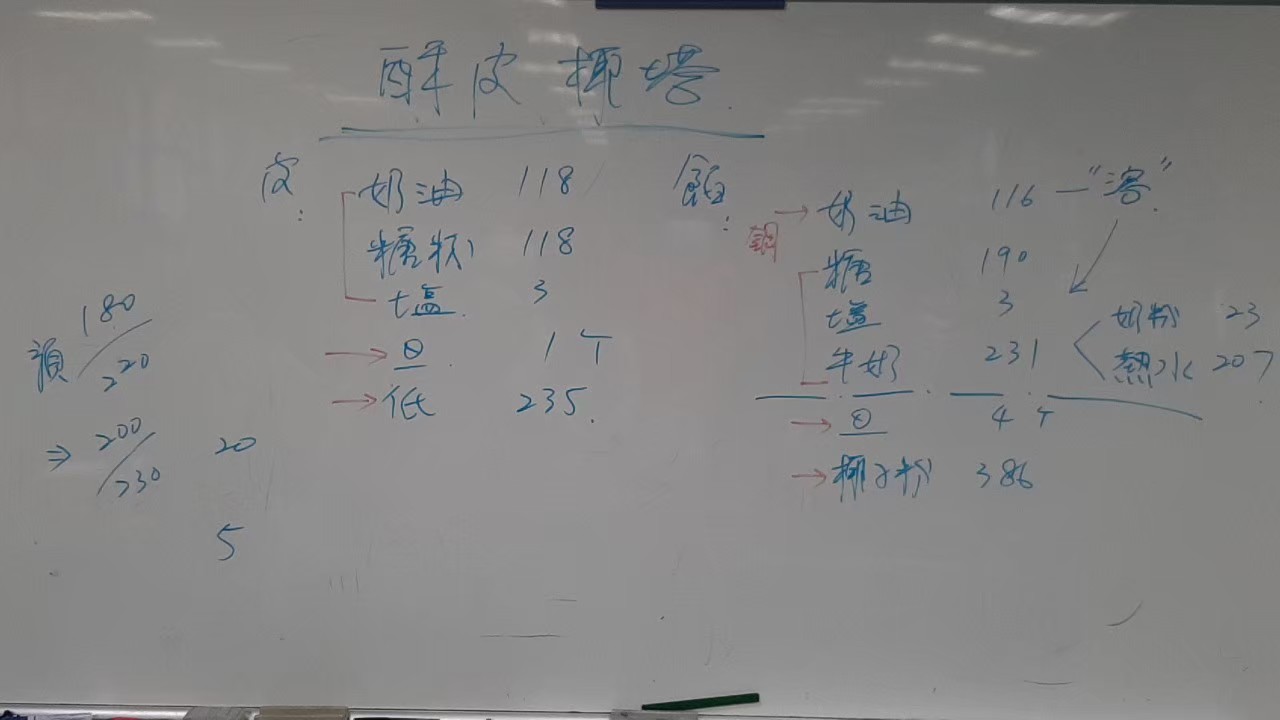 酥皮椰塔
皮:
奶油 118
糖粉 118
塩 3
→ 旦 1个
→ 低 235.
餡:
鍋 → 奶油 116 — "溶"
糖 190
塩 3
牛奶 231 < 奶粉 23
熱水 207
→ 旦 4个
→ 椰子粉 386
預 180/220
⇒ 200/230 20
5